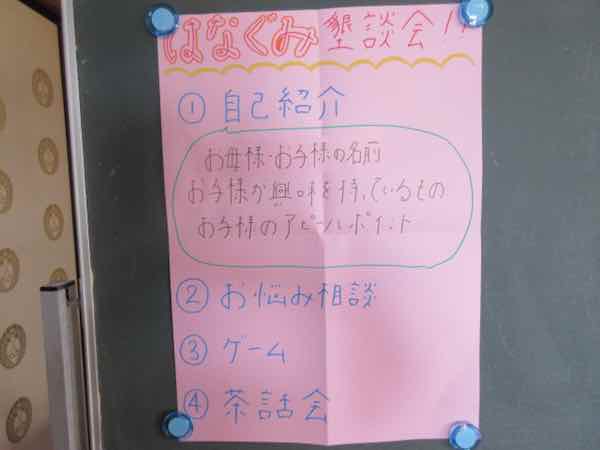 はなぐみ墾談会!!
① 自己紹介
お母様・お子様の名前
お子様が興味を持っているもの
お子様のアピールポイント
② お悩み相談
③ ゲーム
④ 茶話会